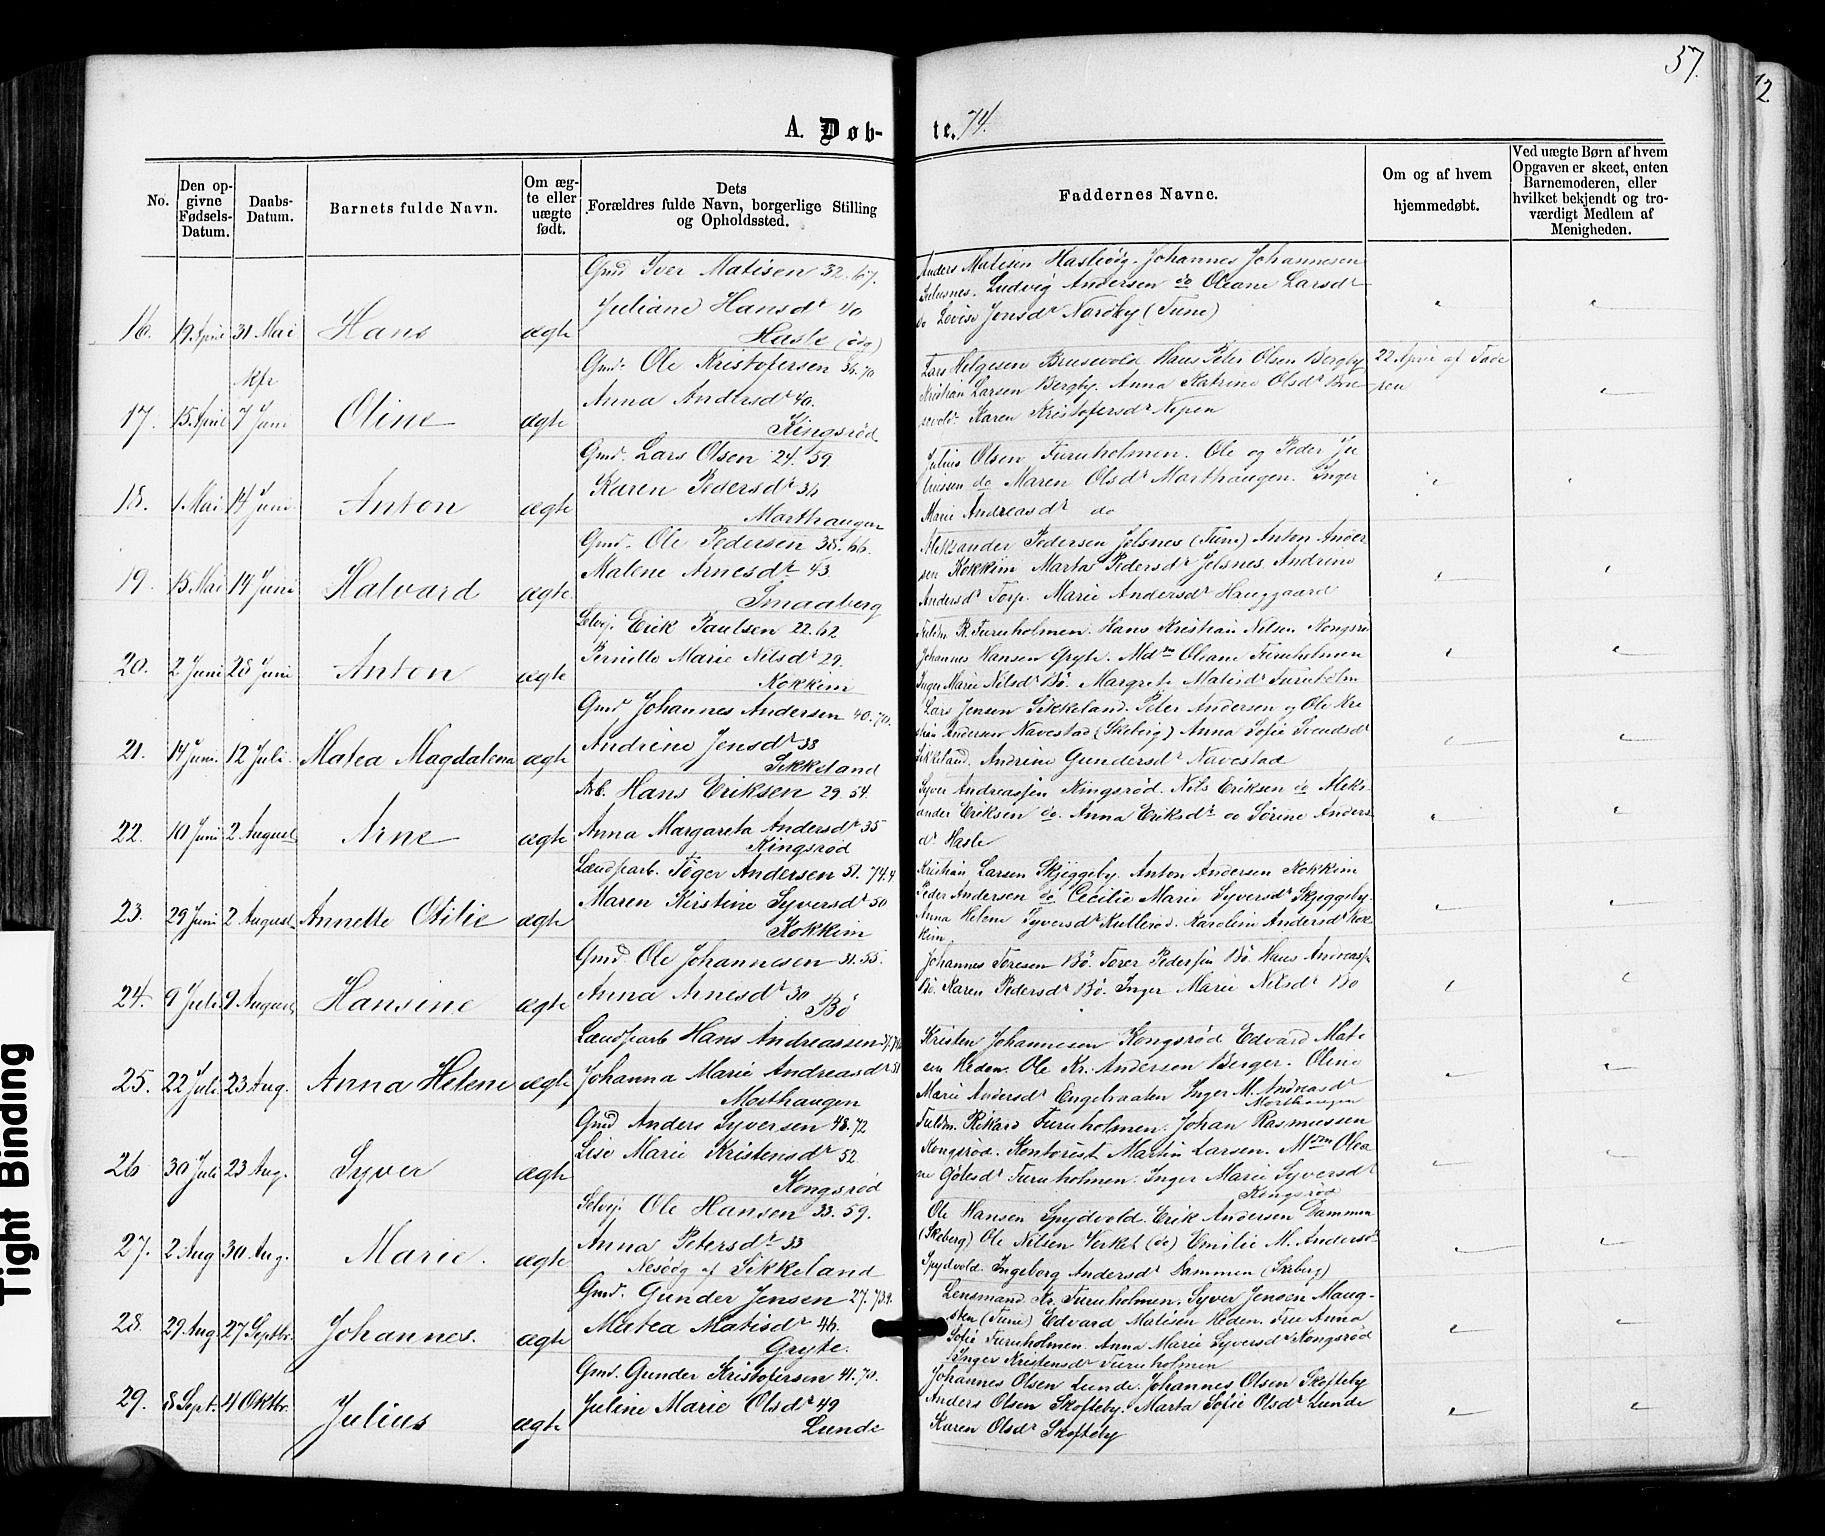 57.
12
A. Døb-
te. 74.
No.
Den op-
givne
Fødsels-
Datum.
Daabs-
Datum.
Barnets fulde Navn.
Om æg-
te eller
uægte
født.
Dets
Forældres fulde Navn, borgerlige Stilling
og Opholdssted.
Faddernes Navne.
Om og af hvem
hjemmedøbt.
Ved uægte Børn af hvem
Opgaven er skeet, enten
Barnemoderen, eller
hvilket bekjendt og tro-
værdigt Medlem af
Menigheden.
16. 19 April 31 Mai Hans ægte
Gmd Iver Matisen 32. 67.
Juliane Hansdr 40
Hasle (ødg)
Anders Matisen Hasleødg. Johannes Johannesen
Ludvig Andersen do Oleane Larsdr
do Lovise Jensdr Nordby (Tune)
17. 15 April 7 Juni Oline ægte
Gmd. Ole Kristofersen 36. 70
Anna Andersdr 40.
Kingsrød
Lars Helgesen Brusevold Hans Peter Olsen Bergby
Kristian Larsen Bergby. Anna Katrine Olsdr Bru-
sevold. Karen Kristofersdr Nepen
22 April af Fade
ren
18. 1 Mai 14 Juni Anton ægte
Gmd. Lars Olsen 24. 59.
Karen Pedersdr 36
Morthaugen
Julius Olsen Furuholmen. Ole og Peder Ju
liussen do Maren Olsdr Morthaugen. Inger
Marie Andreasdr do
19. 15 Mai 14 Juni Halvard ægte
Gmd. Ole Pedersen 38. 66.
Malene Arnesdr 43.
Smaaberg
Aleksander Pedersen Jelsnes (Tune) Anton Ander
sen Kokkim Marta Pedersdr Jelsnes. Andrine
Andersdr Torp. Marie Andersdr Hauggaard
20. 2 Juni 28 Juni Anton ægte
Selvej. Erik Paulsen 22. 62
Pernille Marie Nilsdr 29.
Kokkim
Fuldm R. Furuholmen. Hans Kristian Nilsen Kongsrø
Johannes Hansen Gryte. Mdm Oleane Furuholmen
Inger Marie Nilsdr Bø. Margrete Matisdr Furuholm
21. 14 Juni. 12 Juli. Matea Magdalena ægte
Gmd Johannes Andersen 40. 70.
Andrine Jensdr 38
Sikkeland
Lars Jensen Sikkeland. Peter Andersen og Ole Kri
stian Andersen Navestad (Skeberg) Anna Sofie Svendsdr
Sikkeland. Andrine Gundersdr Navestad
22. 10 Juni 2 August Arne ægte
Arb. Hans Eriksen 29. 54.
Anna Margareta Andersdr 35
Kingsrød
Syver Andreassen Kingsrød. Nils Eriksen do Aleks-
ander Eriksen do. Anna Eriksdr do Sørine Anders
dr Hasle
23. 29 Juni 2 August Annette Otilie ægte
Landparb. Tøger Andersen 51. 74.
Maren Kirstine Syversdr 50
Kokkim
Kristian Larsen Skjeggeby. Anton Andersen Kokkim
Peder Andersen do Cecilie Marie Syversdr Skjeggeby.
Anna Helene Syversdr Kullerød. Karoline Andersdr Kok
kim
24. 9 Juli 9 August Hansine ægte
Gmd Ole Johannesen 31. 55.
Anna Arnesdr 30
Bø
Johannes Toresen Bø. Torer Pedersen Bø. Hans Andreass
Bø. Karen Pedersdr Bø. Inger Marie Nilsdr Bø
25. 22 Juli 23 Aug. Anna Helene ægte
Landparb Hans Andreassen
Johanna Marie Andreasdr 51
Morthaugen
Kristen Johannesen Kongsrød Edvard Mati
sen Heden. Ole Kr. Andersen Berger. Oline
Marie Andersdr Engebraaten Inger M. Andreasdr
Morthaugen
26 30 Juli 23 Aug. Syver ægte
Gmd Anders Syversen 48. 72
Lise Marie Kristensdr 52.
Kongsrød
Fuldm. Rikard Furuholmen. Johan Rasmussen
Kongsrød. Kontorist Martin Larsen. Mdm Olea
ne Gøtesdr Furuholmen. Inger Marie Syversdr
Kingsrød
27. 2 Aug 30 Aug. Marie. ægte
Selvej. Ole Hansen 33. 59.
Anna Petersdr 33
Nesødg af Sikkeland
Ole Hansen Spydvold. Erik Andersen Dammen
(Skeberg) Ole Nilsen Verket (do) Emilie M. Andersdr
Spydvold. Ingeborg Andersdr Dammen (Skeberg)
28. 29 Aug. 27 Septbr. Johannes. ægte
Gmd. Gunder Jensen 27. 73.
Matea Matisdr 46.
Gryte.
Lensmand Kr. Furuholmen. Syver Jensen Haug-
sten (Tune) Edvard Matisen Heden. Fru Anna
Sofie Furuholmen. Anna Marie Syversdr Kongsrød
Inger Kristensdr Furuholmen
29. 8 Sept. 4 Oktbr. Julius ægte
Gmd. Gunder Kristofersen 41. 70.
Juline Marie Olsdr 49
Lunde
Johannes Olsen Lunde. Johannes Olsen Skofteby
Anders Olsen Skofteby. Marta Sofie Olsdr Lunde
Karen Olsdr Skofteby
Tight Binding